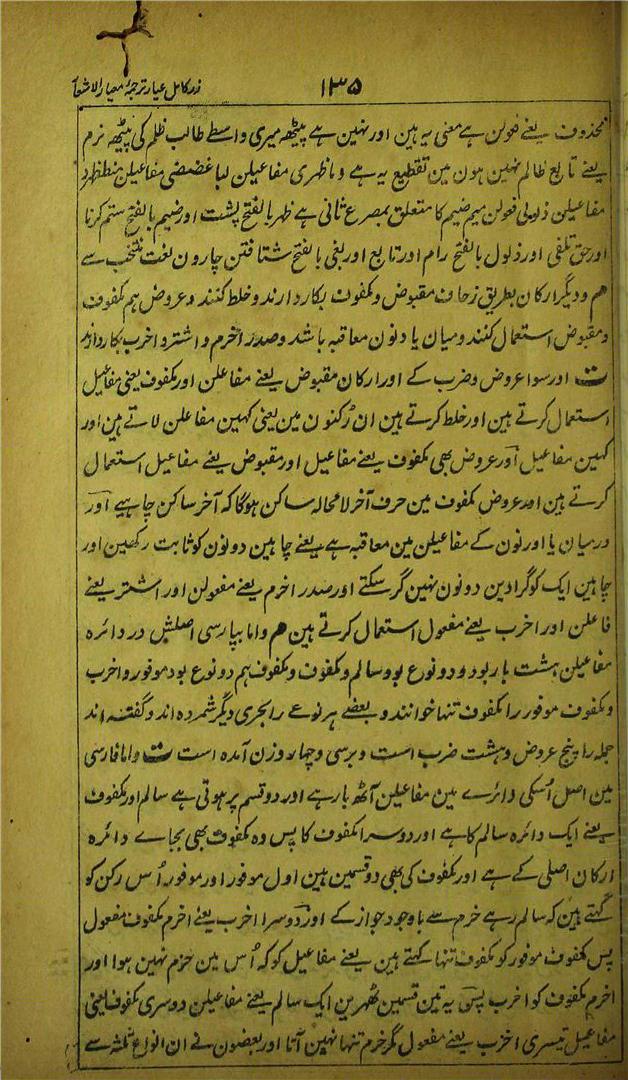 زر کامل عیار ترجمۂ معیار الاشعار ۱۳۵
محذوف یعنے فعولن ہے معنی یہ ہین اور نہین ہے پیٹھ میری واسطے طالب ظلم کی پیٹھ نرم
یعنے تابع ظالم نہین ہون مین تقطیع یہ ہے وما ظہری مفاعیلن لباغضضی مفاعیلن
مفاعیلن ذلولی فعولن میم ضیم کا متعلق بمصرع ثانی ہے ظہر بالفتح پشت اور ضیم بالفتح ستم کرنا
اور حق تلفی اور ذلول بالفتح رام اور تابع اور بغی بالفتح شتافتن چارون لغت منتخب سے
هم و دیگر ارکان بطریق زحاف مقبوض و مکفوف بکار دارند و خلط کنند و عروض هم مکفوف
و مقبوض استعمال کنند و میان یا و نون معاقبه باشد و صدر اخرم و اشتر و اخرب بکار دارند
ت اور سوا عروض و ضرب کے اور ارکان مقبوض یعنے مفاعلن اور مکفوف یعنی مفاعیل
استعمال کرتے ہین اور خلط کرتے ہین ان رکنون مین یعنی کہین مفاعلن لاتے ہین اور
کہین مفاعیل اور عروض بھی مکفوف یعنے مفاعیل اور مقبوض یعنے مفاعیل استعمال
کرتے ہین اور عروض مکفوف مین حرف آخر لا محالہ ساکن ہوگا کہ آخر ساکن چاہیے اور
درمیان یا اور نون کے مفاعیلن مین معاقبہ ہے یعنے چاہین دونون کو ثابت رکھین اور
چاہین ایک کو گرادین دونون نہین گر سکتے اور صدر اخرم یعنے مفعولن اور اشتر یعنے
فاعلن اور اخرب یعنے مفعول استعمال کرتے ہین هم و اما بپارسی اصلش در دائره
مفاعیلن هشت بار بود و دو نوع بود سالم و مکفوف و مکفوف هم دو نوع بود موفور و اخرب
و مکفوف موفور را مکفوف تنها خوانند و بعضے هر نوعے را بحری دیگر شمرده اند و گفته اند
جمله را پنج عروض و هشت ضرب است و برسی و چهار وزن آمده است ت و اما فارسی
مین اصل اُسکی دائرے مین مفاعیلن آٹھ بار ہے اور دو قسم پر ہوتی ہے سالم اور مکفوف
یعنے ایک دائرہ سالم کا ہے اور دوسرا مکفوف کا پس وہ مکفوف بھی بجاے دائرہ
ارکان اصلی کے ہے اور مکفوف کی بھی دو قسمین ہین اول موفور اور موفور اُس رکن کو
کہتے ہین کہ سالم رہے خرم سے باوجود جواز کے اور دوسرا اخرب یعنے اخرم مکفوف مفعول
پس مکفوف موفور کو مکفوف تنہا کہتے ہین یعنے مفاعیل کو کہ اُس مین خرم نہین ہوا اور
اخرم مکفوف کو اخرب پس یہ تین قسمین ٹھہرین ایک سالم یعنے مفاعیلن دوسری مکفوف یعنی
مفاعیل تیسری اخرب یعنے مفعول مگر خرم تنہا نہین آتا اور بعضون نے ان انواع ثلثہ سے